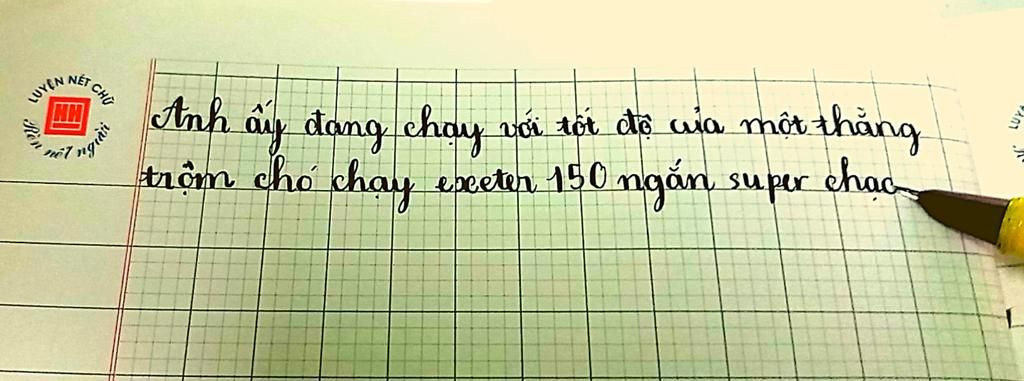 LUYỆN NÉT CHỮ
HH
Rèn nết người
Anh ấy đang chạy với tốt độ của một thằng
trộm chó chạy exceter 150 ngắn super chạc